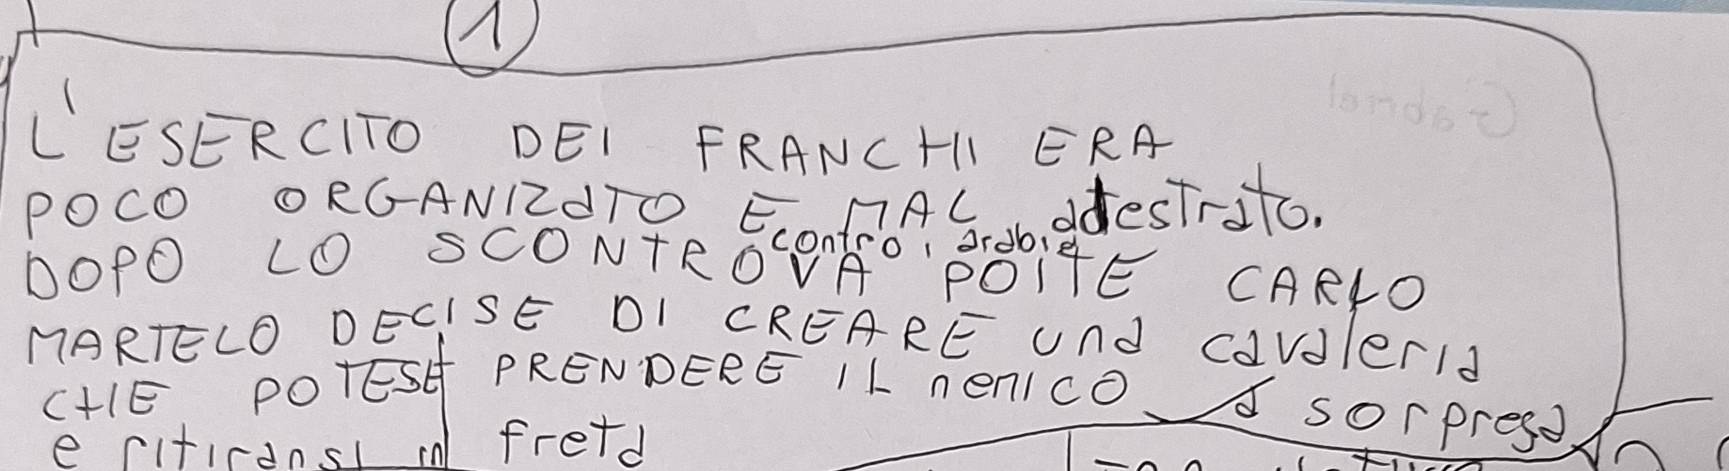 1
L'ESERCITO DEI FRANCHI ERA
POCO ORGANIZaTO E MAL adtestrato.
DOPO LO SCONTRO contro i arabi a
VA POITE CARLO
MARTELO DECISE DI CREARE una cavaleria
CHE POTESE PRENDERE IL nemICO a sorpresa
e ritiransi in freta